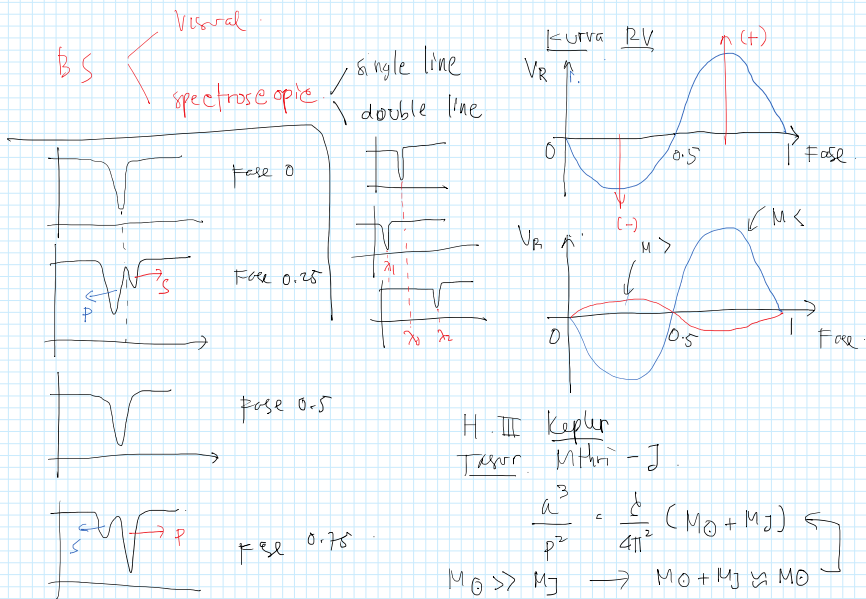 Visual
BS
spectroscopic
single line
double line
Fase 0
Fase 0.25
P
S
Fase 0.5
Fase 0.75
S
P
λ1
λ0
λ2
Kurva RV
VR
(+)
0
0.5
1
Fase
(-)
VR
M >
M <
0
0.5
1
Fase
H. III Kepler
Mthri - J
a³/P² = G/4π² (M⊙ + MJ)
M⊙ >> MJ → M⊙ + MJ ≈ M⊙